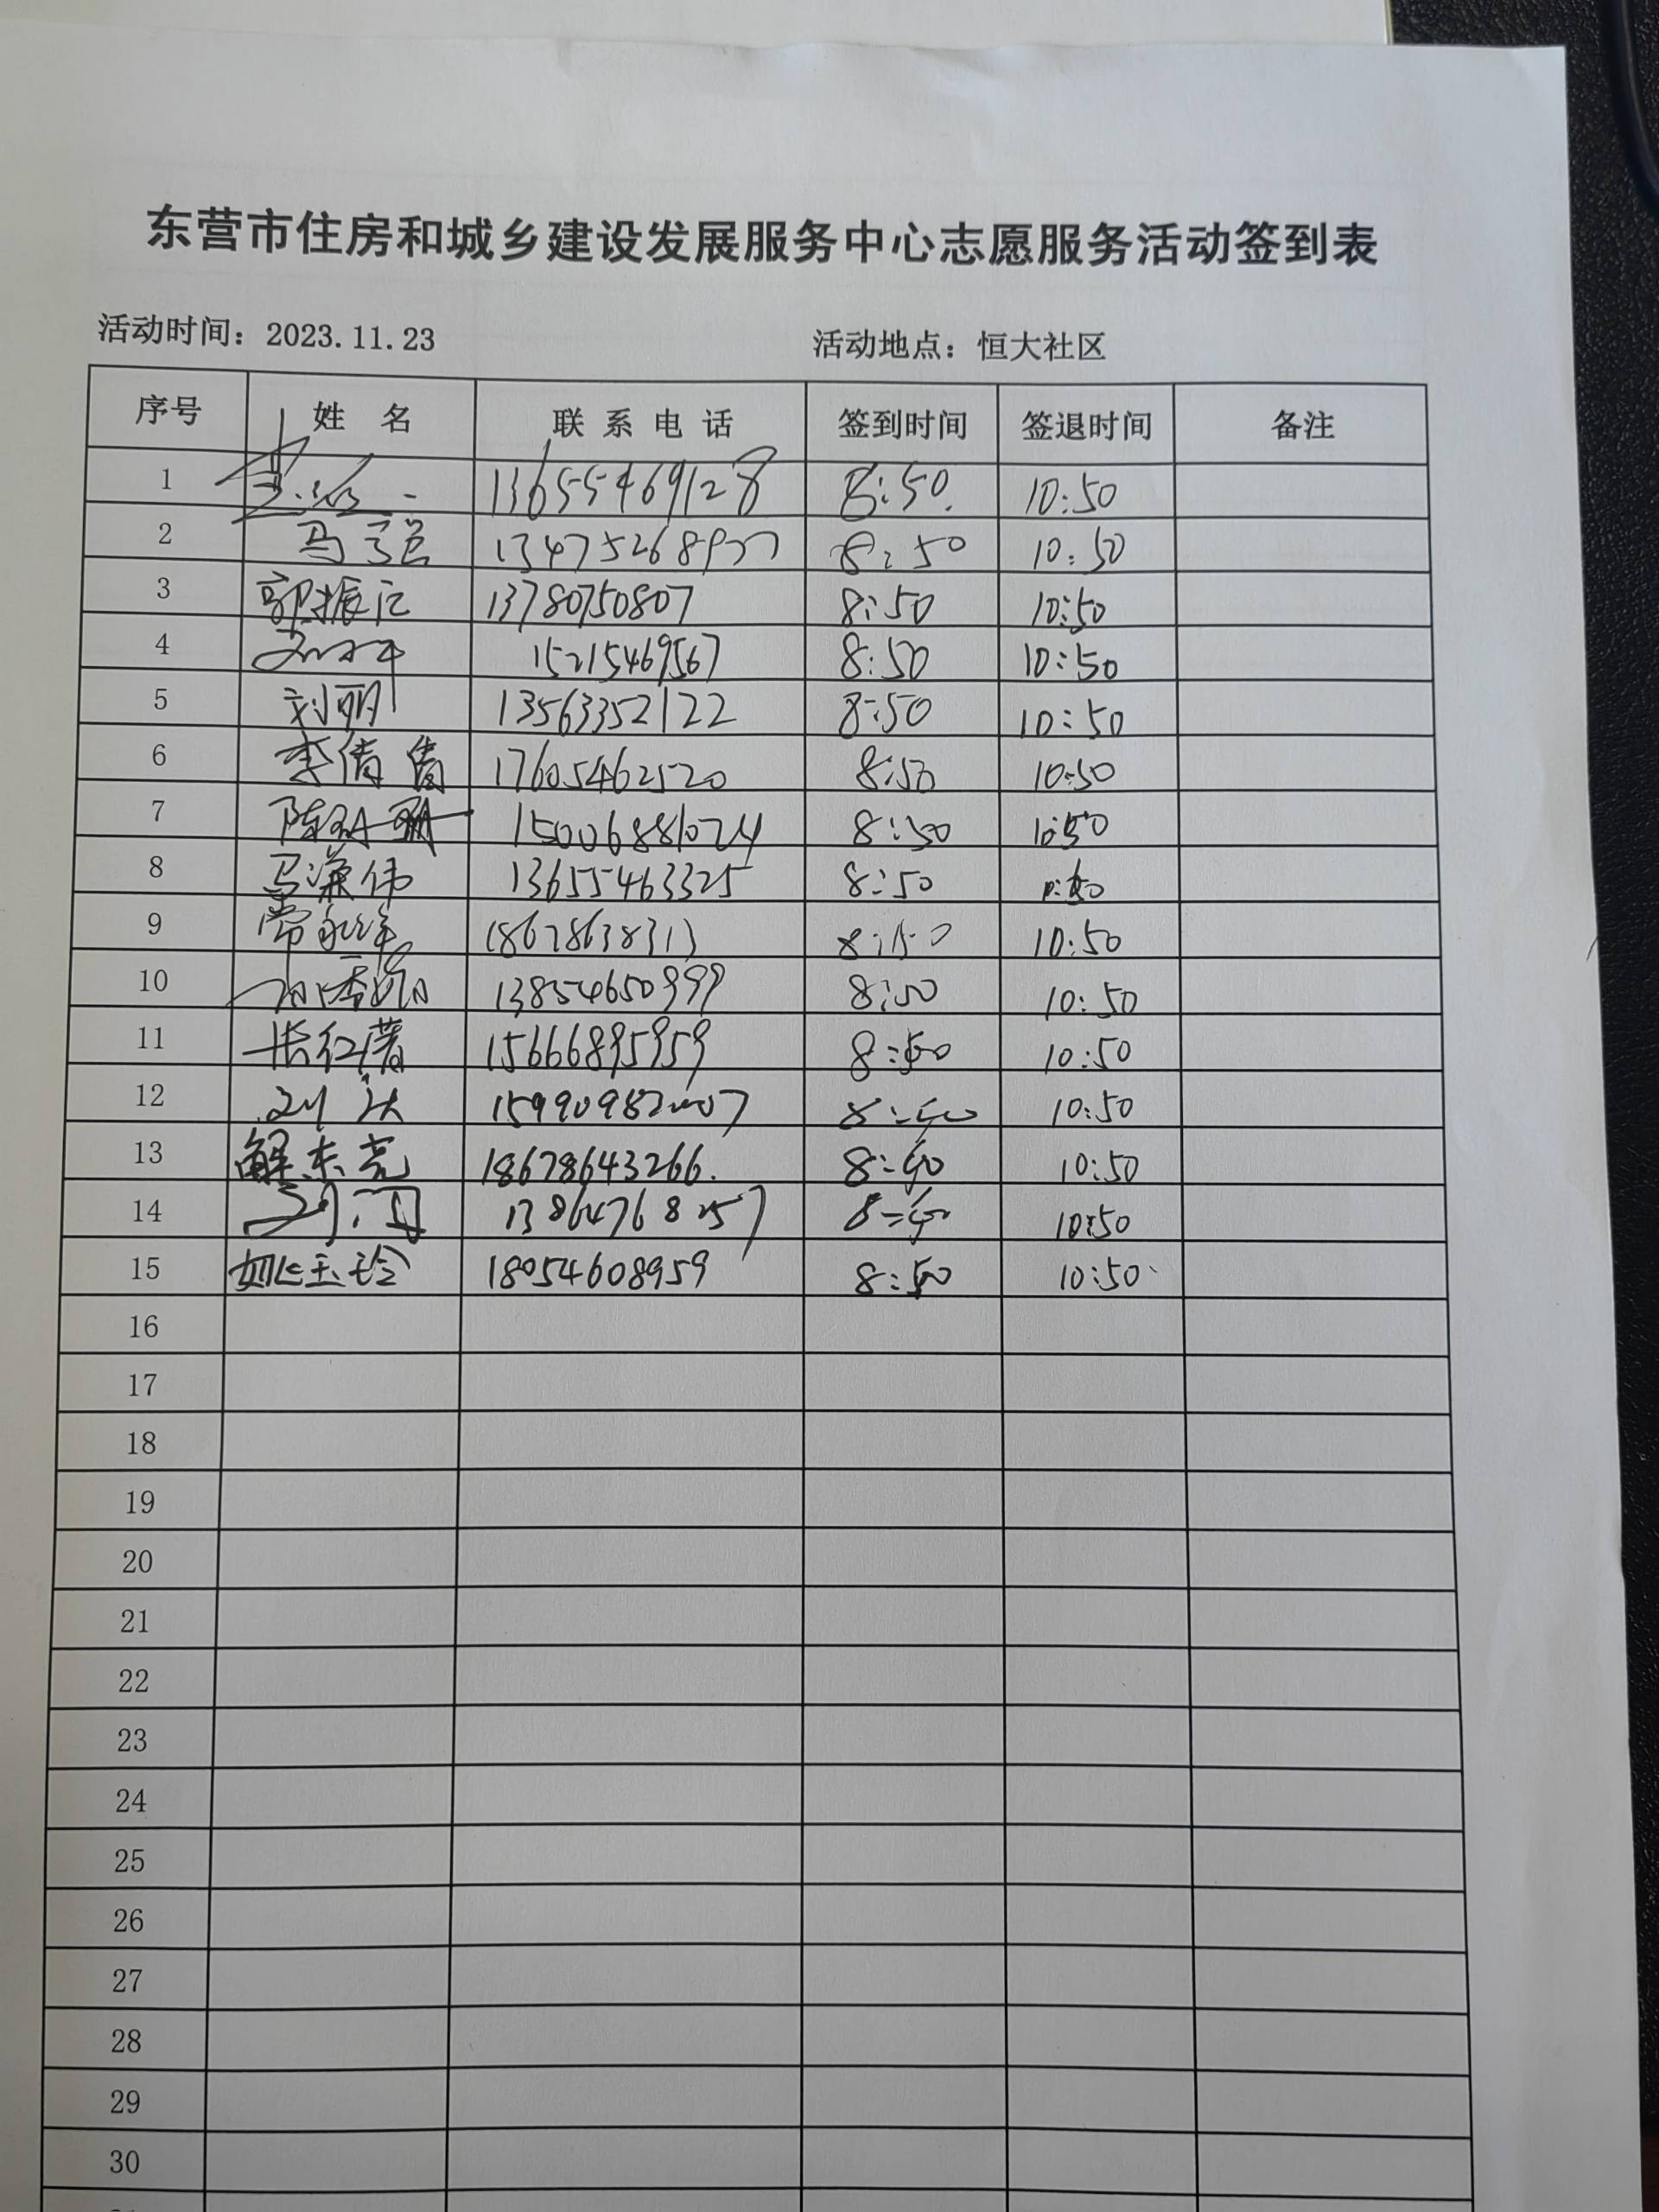 东营市住房和城乡建设发展服务中心志愿服务活动签到表
活动时间：2023.11.23 活动地点：恒大社区
序号 姓 名 联 系 电 话 签到时间 签退时间 备注
1 13655469128 8:50 10:50
2 8:50 10:50
3 郭振江 13780750807 8:50 10:50
4 15215469567 8:50 10:50
5 刘丽 13563352122 8:50 10:50
6 李倩倩 17605462520 8:50 10:50
7 15006881074 8:50 10:50
8 马潇伟 13655463325 8:50 10:50
9 8:50 10:50
10 13854650999 8:50 10:50
11 15666895959 8:50 10:50
12 10:50
13 解东亮 18678643266. 10:50
14 13864768257 10:50
15 18054608959 8:50 10:50
16
17
18
19
20
21
22
23
24
25
26
27
28
29
30